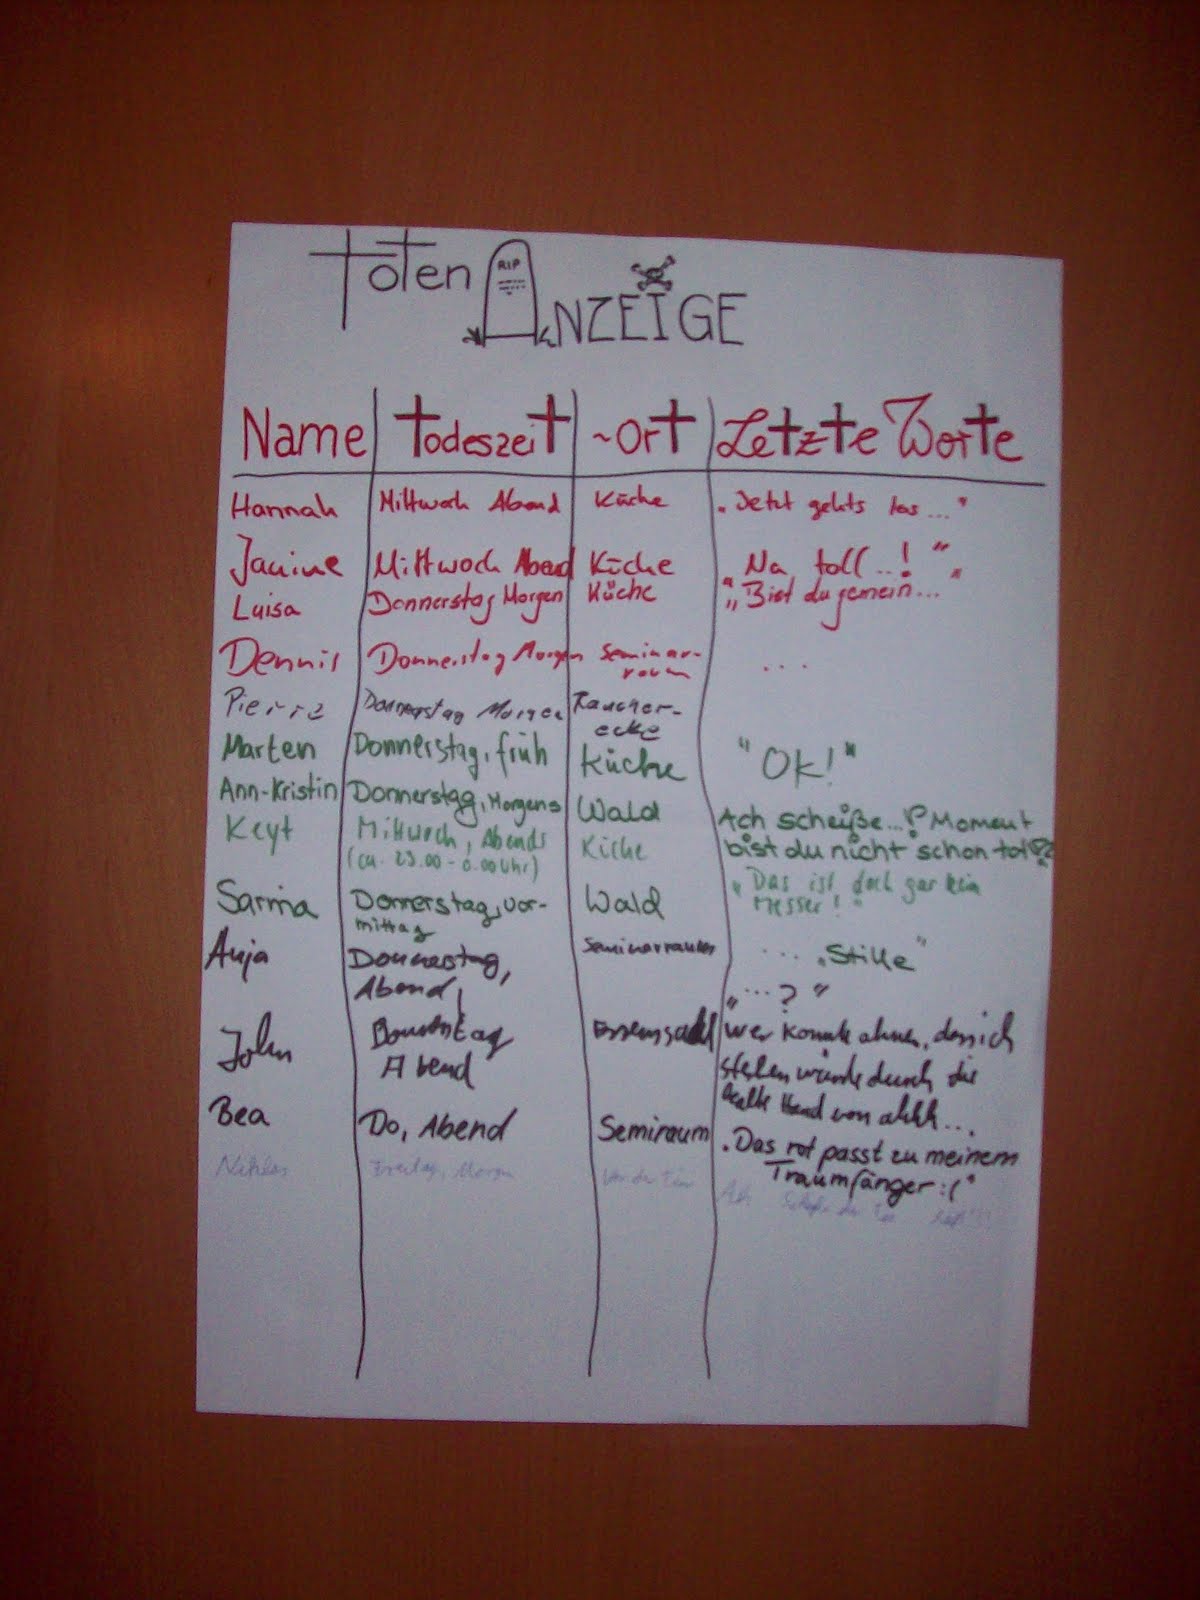 Toten ANZEIGE
RIP
Name Todeszeit ~Ort Letzte Worte
Hannah Mittwoch Abend Küche "Jetzt gehts los..."
Janine Mittwoch Abend Küche "Na toll...!"
Luisa Donnerstag Morgen Küche "Bist du gemein..."
Dennis Donnerstag Morgen Seminar-
raum ...
Pierre Donnerstag Morgen Raucher-
ecke
Marten Donnerstag, früh Küche "Ok!"
Ann-Kristin Donnerstag, Morgens Wald Ach scheiße...!? Moment
bist du nicht schon tot!??
Keyt Mittwoch, Abends Küche "Das ist doch gar kein
(ca. 23.00 - 0.00 Uhr) Messer!"
Sarina Donnerstag, Vor-
mittag Wald ... "Stille"
Anja Donnerstag,
Abend Seminarraum "...?"
John Donnerstag
Abend Essensaal Wer konnte ahnen, dass ich
sterben würde durch die
kalte Hand von
Bea Do, Abend Semiraum "Das rot passt zu meinem
Traumfänger :("
Niklas Freitag, Morgen Vor der Tür